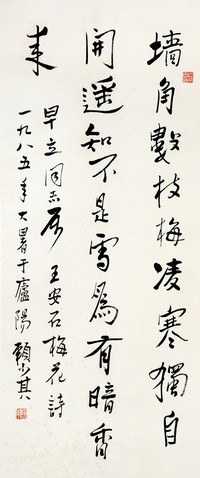 墙角数枝梅凌寒獨自
開遥知不是雪爲有暗香
来
早立同志属 王安石梅花詩
一九八五年大暑于廬陽 賴少其